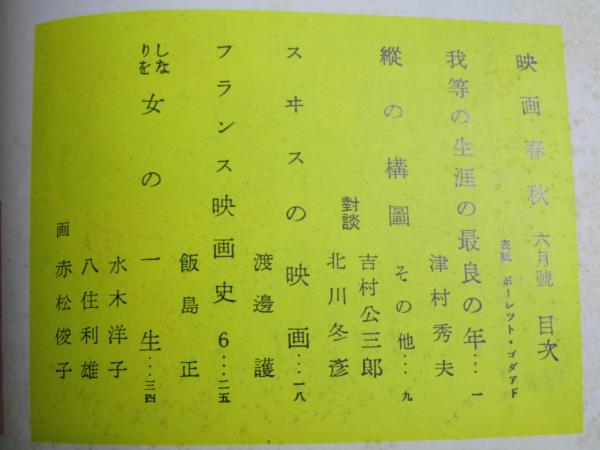 映画春秋 六月號 目次
表紙 ポーレット・ゴダアド
我等の生涯の最良の年…一
津村秀夫
縱の構圖 その他…九
對談
吉村公三郎
北川冬彥
スヰスの映画…一八
渡邊護
フランス映画史6…二五
飯島正
しなりを
女の一生…三四
水木洋子
八住利雄
画 赤松俊子